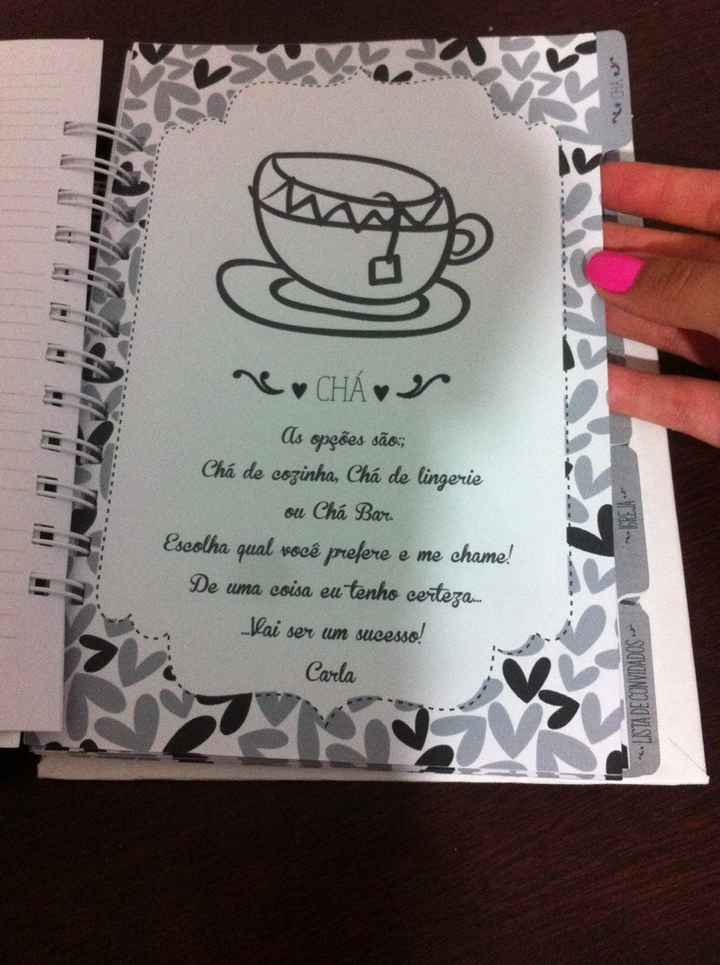 CHÁ
As opções são:;
Chá de cozinha, Chá de lingerie
ou Chá Bar.
Escolha qual você prefere e me chame!
De uma coisa eu tenho certeza...
...Vai ser um sucesso!
Carla
CHÁ
IGREJA
LISTA DE CONVIDADOS